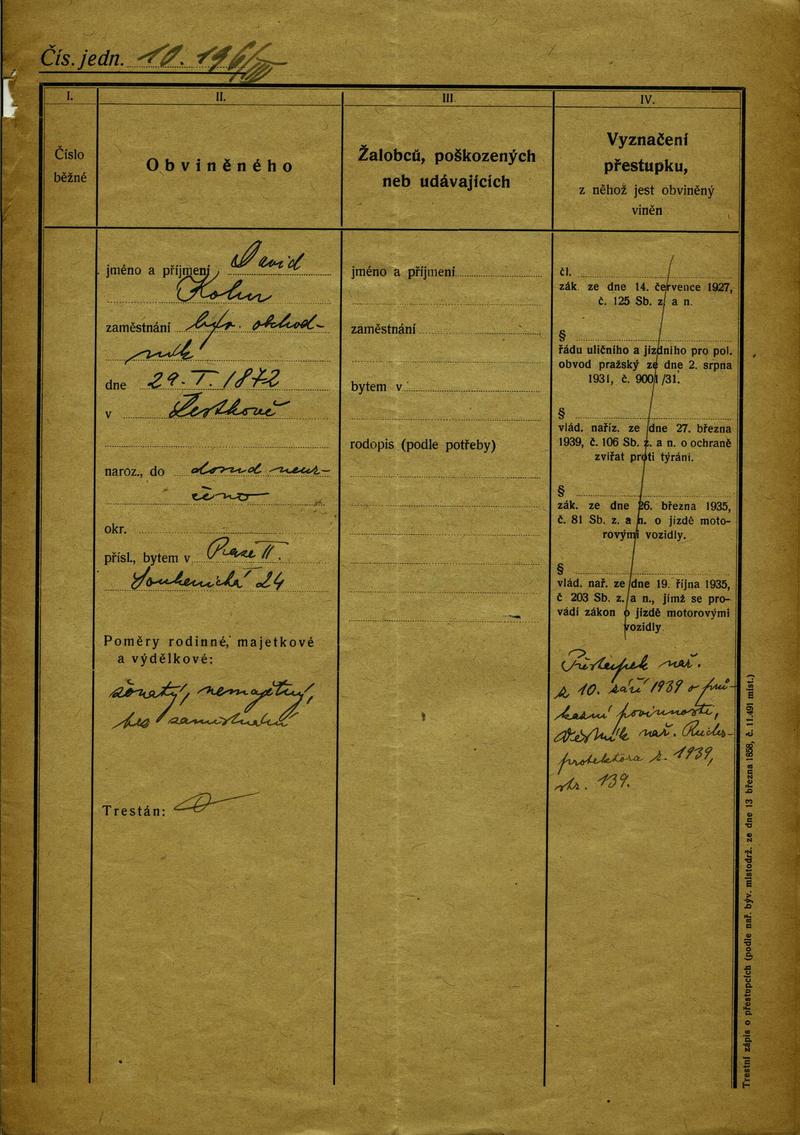 Čís. jedn. 10.196/III
I.
II.
III.
IV.
Číslo
běžné
Obviněného
Žalobců, poškozených
neb udávajících
Vyznačení
přestupku,
z něhož jest obviněný
viněn
jméno a příjmení David
Kohn
zaměstnání býv. obchod-
ník
dne 29. I. 1872
v
naroz., do domov. neur-
čeno
okr.
přísl., bytem v Praze II.
Soukenická 24
Poměry rodinné, majetkové
a výdělkové:
ženatý, nemajetný,
bez zaměstnání
Trestán: 0
jméno a příjmení
zaměstnání
bytem v
rodopis (podle potřeby)
čl.
zák ze dne 14. července 1927,
č. 125 Sb. z. a n.
§
řádu uličního a jízdního pro pol.
obvod pražský ze dne 2. srpna
1931, č. 9001/31.
§
vlád. naříz. ze dne 27. března
1939, č. 106 Sb. z. a n. o ochraně
zvířat proti týrání.
§
zák. ze dne 26. března 1935,
č. 81 Sb. z. a n. o jízdě moto-
rovými vozidly.
§
vlád. nař. ze dne 19. října 1935,
č 203 Sb. z. a n., jímž se pro-
vádí zákon o jízdě motorovými
vozidly
Přestupek nař.
z 10. září 1939 o prů-
kazní povinnosti,
Věstník nař. Říšs.
protektora z. 1939,
str. 139.
Trestní zápis o přestupcích (podle nař. býv. místodrž. ze dne 13 března 1858, č. 11.491 míst.)